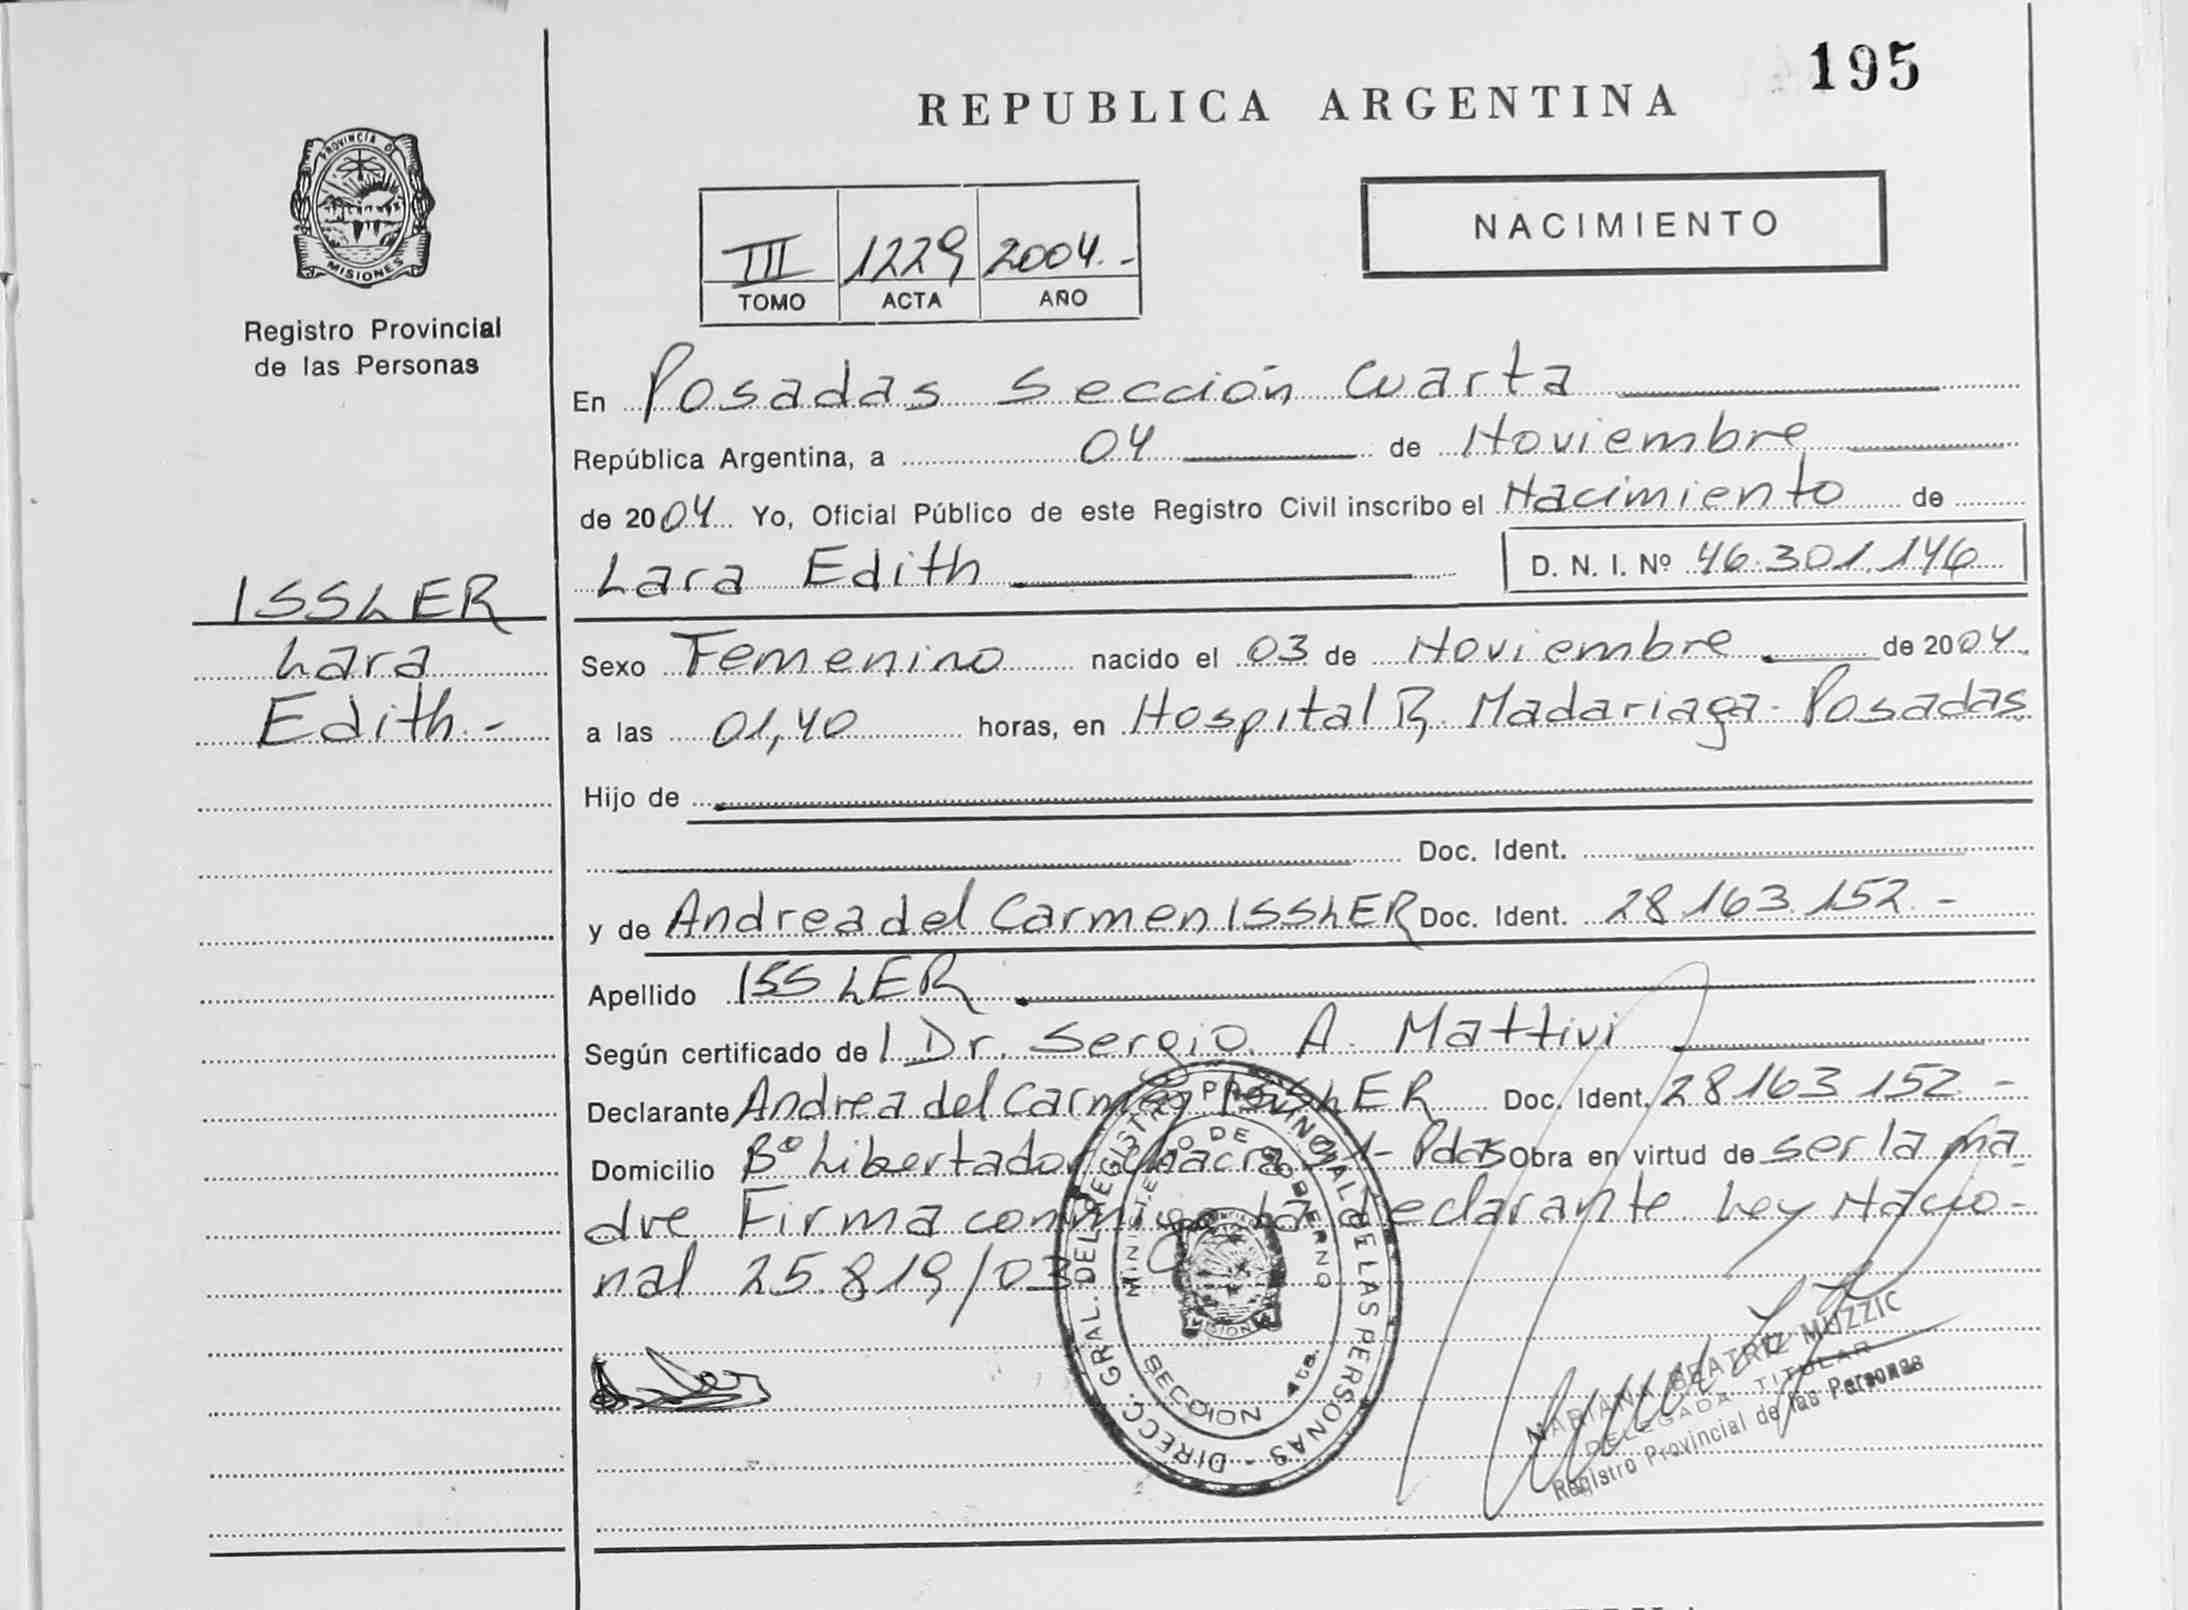 195
REPUBLICA ARGENTINA
PROVINCIA D
MISIONES
Registro Provincial
de las Personas
NACIMIENTO
III 1229 2004.-
TOMO ACTA AÑO
En Posadas Sección Cuarta
República Argentina, a 04 de Noviembre
de 2004 Yo, Oficial Público de este Registro Civil inscribo el Nacimiento de
Lara Edith D. N. I. Nº 46.301.146
ISSLER
Lara
Edith.-
Sexo Femenino nacido el 03 de Noviembre de 2004.
a las 01,40 horas, en Hospital R. Madariaga - Posadas
Hijo de
Doc. Ident.
y de Andrea del Carmen ISSLER Doc. Ident. 28.163.152.-
Apellido ISSLER
Según certificado de l Dr. Sergio A. Mattivi
Declarante Andrea del Carmen ISSLER Doc. Ident. 28163152.-
Domicilio Bº Libertador Chacra - Pdas Obra en virtud de ser la ma
dre Firma conmigo la declarante Ley Nacio-
nal 25.819/03
DIRECC. GRAL. DEL REGISTRO PROVINCIAL DE LAS PERSONAS -
MINISTERIO DE GOBIERNO
SECCION 4ta.
MARIANA BEATRIZ MUZZIC
DELEGADA TITULAR
Registro Provincial de las Personas